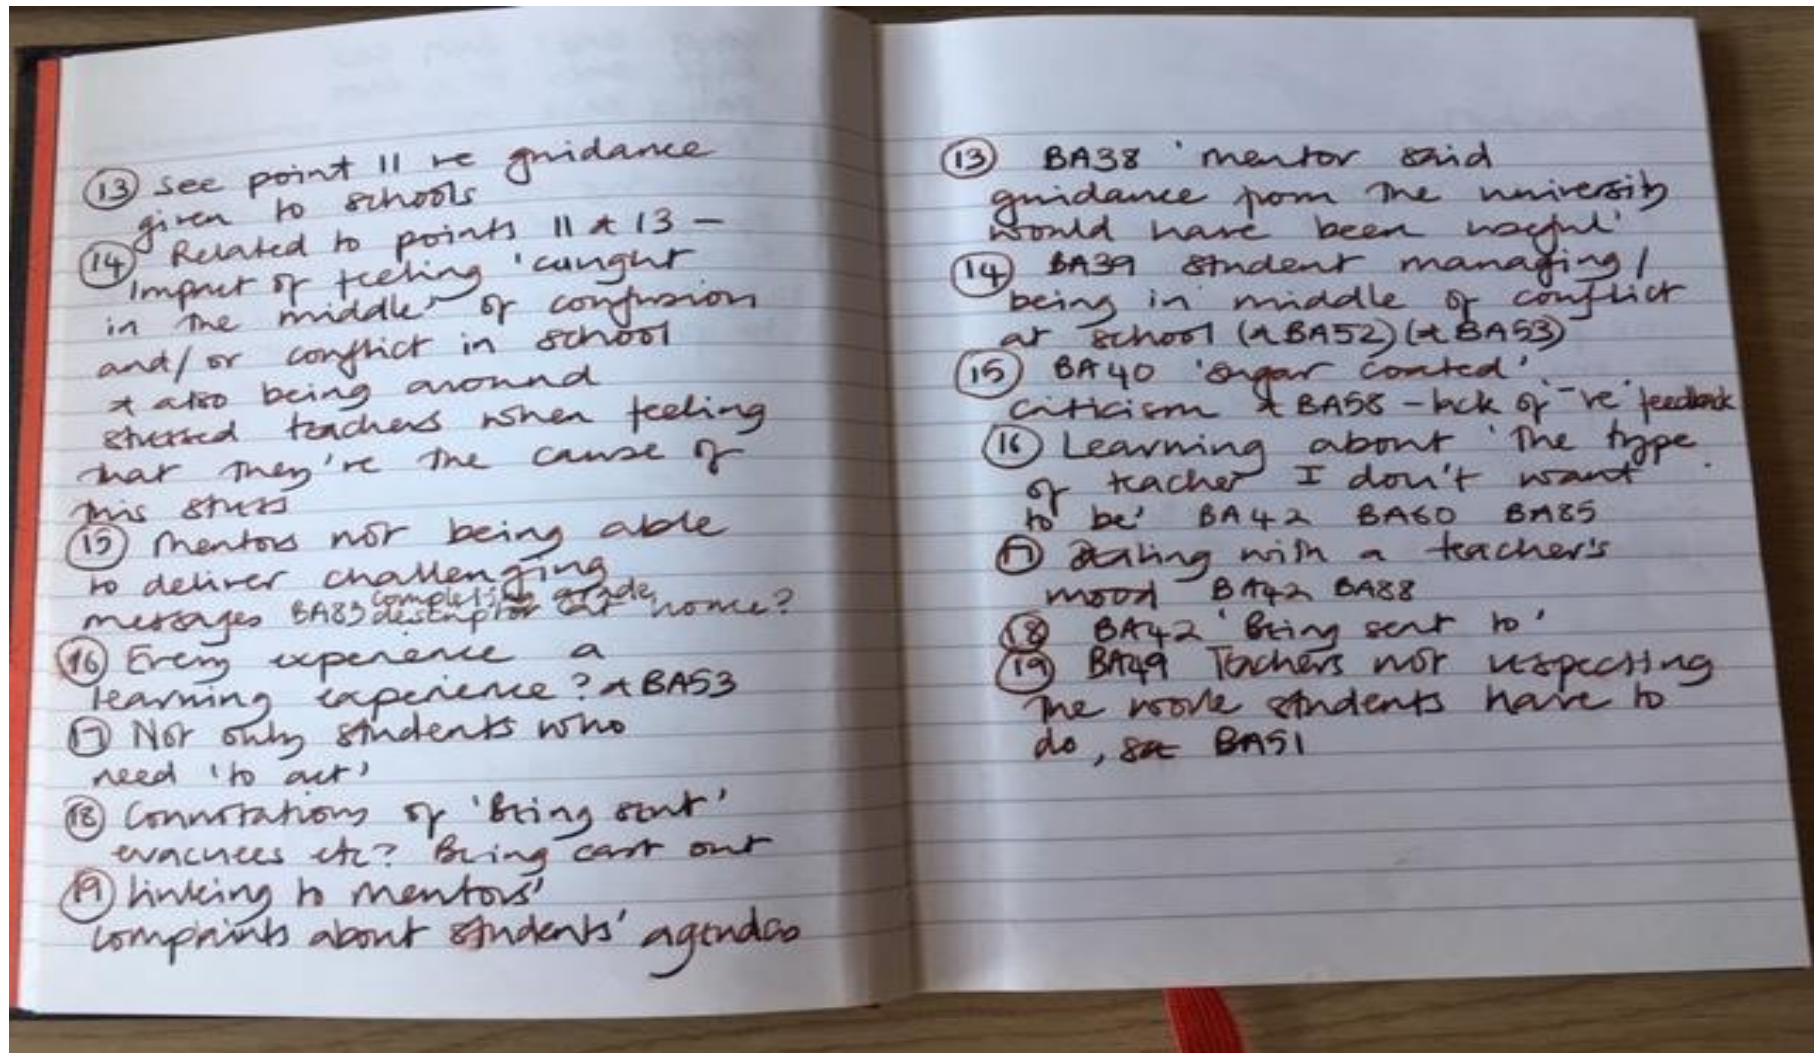 (13) See point 11 re guidance
given to schools
(14) Related to points 11 & 13 –
Impact of feeling 'caught
in the middle' of confusion
and/or conflict in school
& also being around
stressed teachers when feeling
that they're the cause of
this stress
(15) Mentors not being able
to deliver challenging
messages BA83 completing grade
descriptor at home?
(16) Every experience a
learning experience? & BA53
(17) Not only students who
need 'to act'
(18) Connotations of 'Being sent'
evacuees etc? Being cast out
(19) Linking to mentors'
complaints about students' agendas
(13) BA38 'mentor said
guidance from the university
would have been useful'
(14) BA39 student managing/
being in middle of conflict
at school (& BA52) (& BA53)
(15) BA40 'sugar coated'
criticism & BA58 – lack of '-ve' feedback
(16) Learning about 'the type
of teacher I don't want
to be' BA42 BA60 BA85
(17) dealing with a teacher's
mood BA42 BA88
(18) BA42 'Being sent to'
(19) BA49 Teachers not respecting
the work students have to
do, see BA51